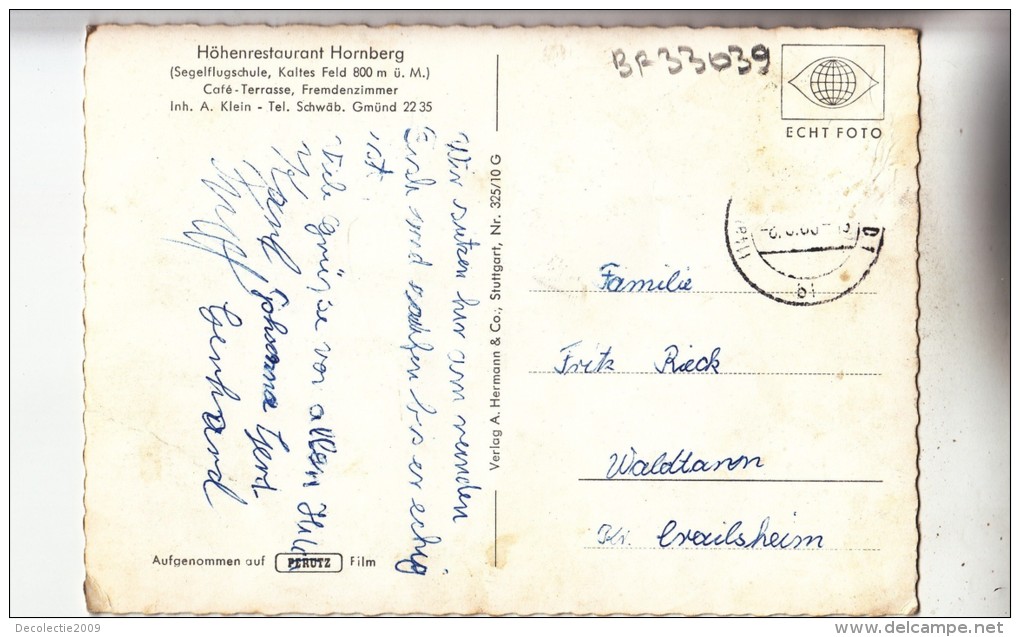 Höhenrestaurant Hornberg
(Segelflugschule, Kaltes Feld 800 m ü. M.)
Café-Terrasse, Fremdenzimmer
Inh. A. Klein - Tel. Schwäb. Gmünd 22 35
BF33039
ECHT FOTO
Wir sitzen hier am runden
Tisch und warten bis er eckig
ist.
Viele Grüsse vor allem
Johanna Gerd
Gerhard
Verlag A. Hermann & Co., Stuttgart, Nr. 325/10 G
Familie
Fritz Rieck
Waldtann
Kr. Crailsheim
Aufgenommen auf PERUTZ Film
Decolectie2009